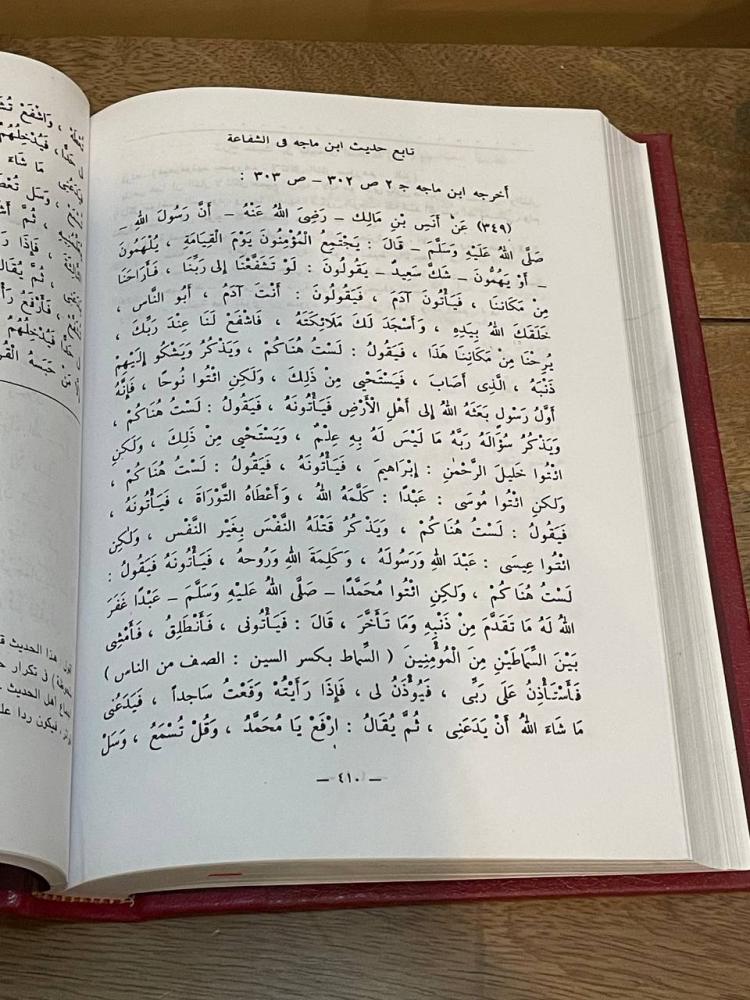 تابع حديث ابن ماجه فى الشفاعة
أخرجه ابن ماجه جـ ٢ ص ٣٠٢ ــ ص ٣٠٣ :
(٣٤٩) عَنْ أَنَسِ بْنِ مَالِك ــ رَضِىَ اللهُ عَنْهُ ــ أَنَّ رَسُولَ اللهِ ــ
صَلَّى اللهُ عَلَيْهِ وَسَلَّمَ ــ قَالَ : يَجْتَمِعُ الْمُؤْمِنُونَ يَوْمَ الْقِيَامَةِ ، يُلْهَمُونَ
ــ أَوْ يَهُمُّونَ ــ شَكَّ سَعِيدٌ ــ يَقُولُونَ : لَوْ تَشَفَّعْنَا إِلى رَبِّنَا ، فَأَرَاحَنَا
مِنْ مَكَانِنَا ، فَيَأْتُونَ آدَمَ ، فَيَقُولُونَ : أَنْتَ آدَمُ ، أَبُو النَّاسِ ،
خَلَقَكَ اللهُ بِيَدِهِ ، وَأَسْجَدَ لَكَ مَلَائِكَتَهُ ، فَاشْفَعْ لَنَا عِنْدَ رَبِّكَ ،
يُرِحْنَا مِنْ مَكَانِنَا هَذَا ، فَيَقُولُ : لَسْتُ هُنَاكُمْ ، وَيَذْكُرُ وَيَشْكُو إِلَيْهِمْ
ذَنْبَهُ ، الَّذِى أَصَابَ ، فَيَسْتَحْيِى مِنْ ذَلِكَ ، وَلَكِنِ ائْتُوا نُوحًا ، فَإِنَّهُ
أَوَّلُ رَسُولٍ بَعَثَهُ اللهُ إِلى أَهْلِ الْأَرْضِ فَيَأْتُونَهُ ، فَيَقُولُ : لَسْتُ هُنَاكُمْ ،
وَيَذْكُرُ سُؤَالَهُ رَبَّهُ مَا لَيْسَ لَهُ بِهِ عِلْمٌ ، وَيَسْتَحْيِى مِنْ ذَلِكَ ، وَلَكِنِ
ائْتُوا خَلِيلَ الرَّحْمٰنِ : إِبْرَاهِيمَ ، فَيَأْتُونَهُ ، فَيَقُولُ : لَسْتُ هُنَاكُمْ ،
وَلَكِنِ ائْتُوا مُوسَى : عَبْدًا : كَلَّمَهُ اللهُ ، وَأَعْطَاهُ التَّوْرَاةَ ، فَيَأْتُونَهُ ،
فَيَقُولُ : لَسْتُ هُنَاكُمْ ، وَيَذْكُرُ قَتْلَهُ النَّفْسَ بِغَيْرِ النَّفْسِ ، وَلَكِنِ
ائْتُوا عِيسَى : عَبْدَ اللهِ وَرَسُولَهُ ، وَكَلِمَةَ اللهِ وَرُوحهُ ، فَيَأْتُونَهُ فَيَقُولُ :
لَسْتُ هُنَاكُمْ ، وَلَكِنِ ائْتُوا مُحَمَّدًا ــ صَلَّى اللهُ عَلَيْهِ وَسَلَّمَ ــ عَبْدًا غَفَرَ
اللهُ لَهُ مَا تَقَدَّمَ مِنْ ذَنْبِهِ وَمَا تَأَخَّرَ ، قَالَ : فَيَأْتُونِى ، فَأَنْطَلِقُ ، فَأَمْشِى
بَيْنَ السِّمَاطَيْنِ مِنَ الْمُؤْمِنِينَ ( السِّماط بكسر السين : الصف من الناس )
فَأَسْتَأْذِنُ عَلَى رَبِّى ، فَيُؤْذَنُ لِى ، فَإِذَا رَأَيْتُهُ وَقَعْتُ سَاجداً ، فَيَدَعُنِى
مَا شَاءَ اللهُ أَنْ يَدَعَنِى ، ثُمَّ يُقَالُ : ارْفَعْ يَا مُحَمَّدُ ، وَقُلْ تُسْمَعْ ، وَسَلْ
ــ ٤١٠ ــ
، وَاشْفَعْ
فَيُدْخِلُهُمُ
مَا شَاءَ
وَسَل تُعْطَ
، ثُمَّ
، فَإِذَا
، ثُمَّ يُقَالُ
، فَأَرْفَعُ
فَيُدْخِلُهُمُ
مَنْ حَبَسَهُ
أقول : هذا الحديث
فى تكرار
أهل الحديث
فيكون ردا